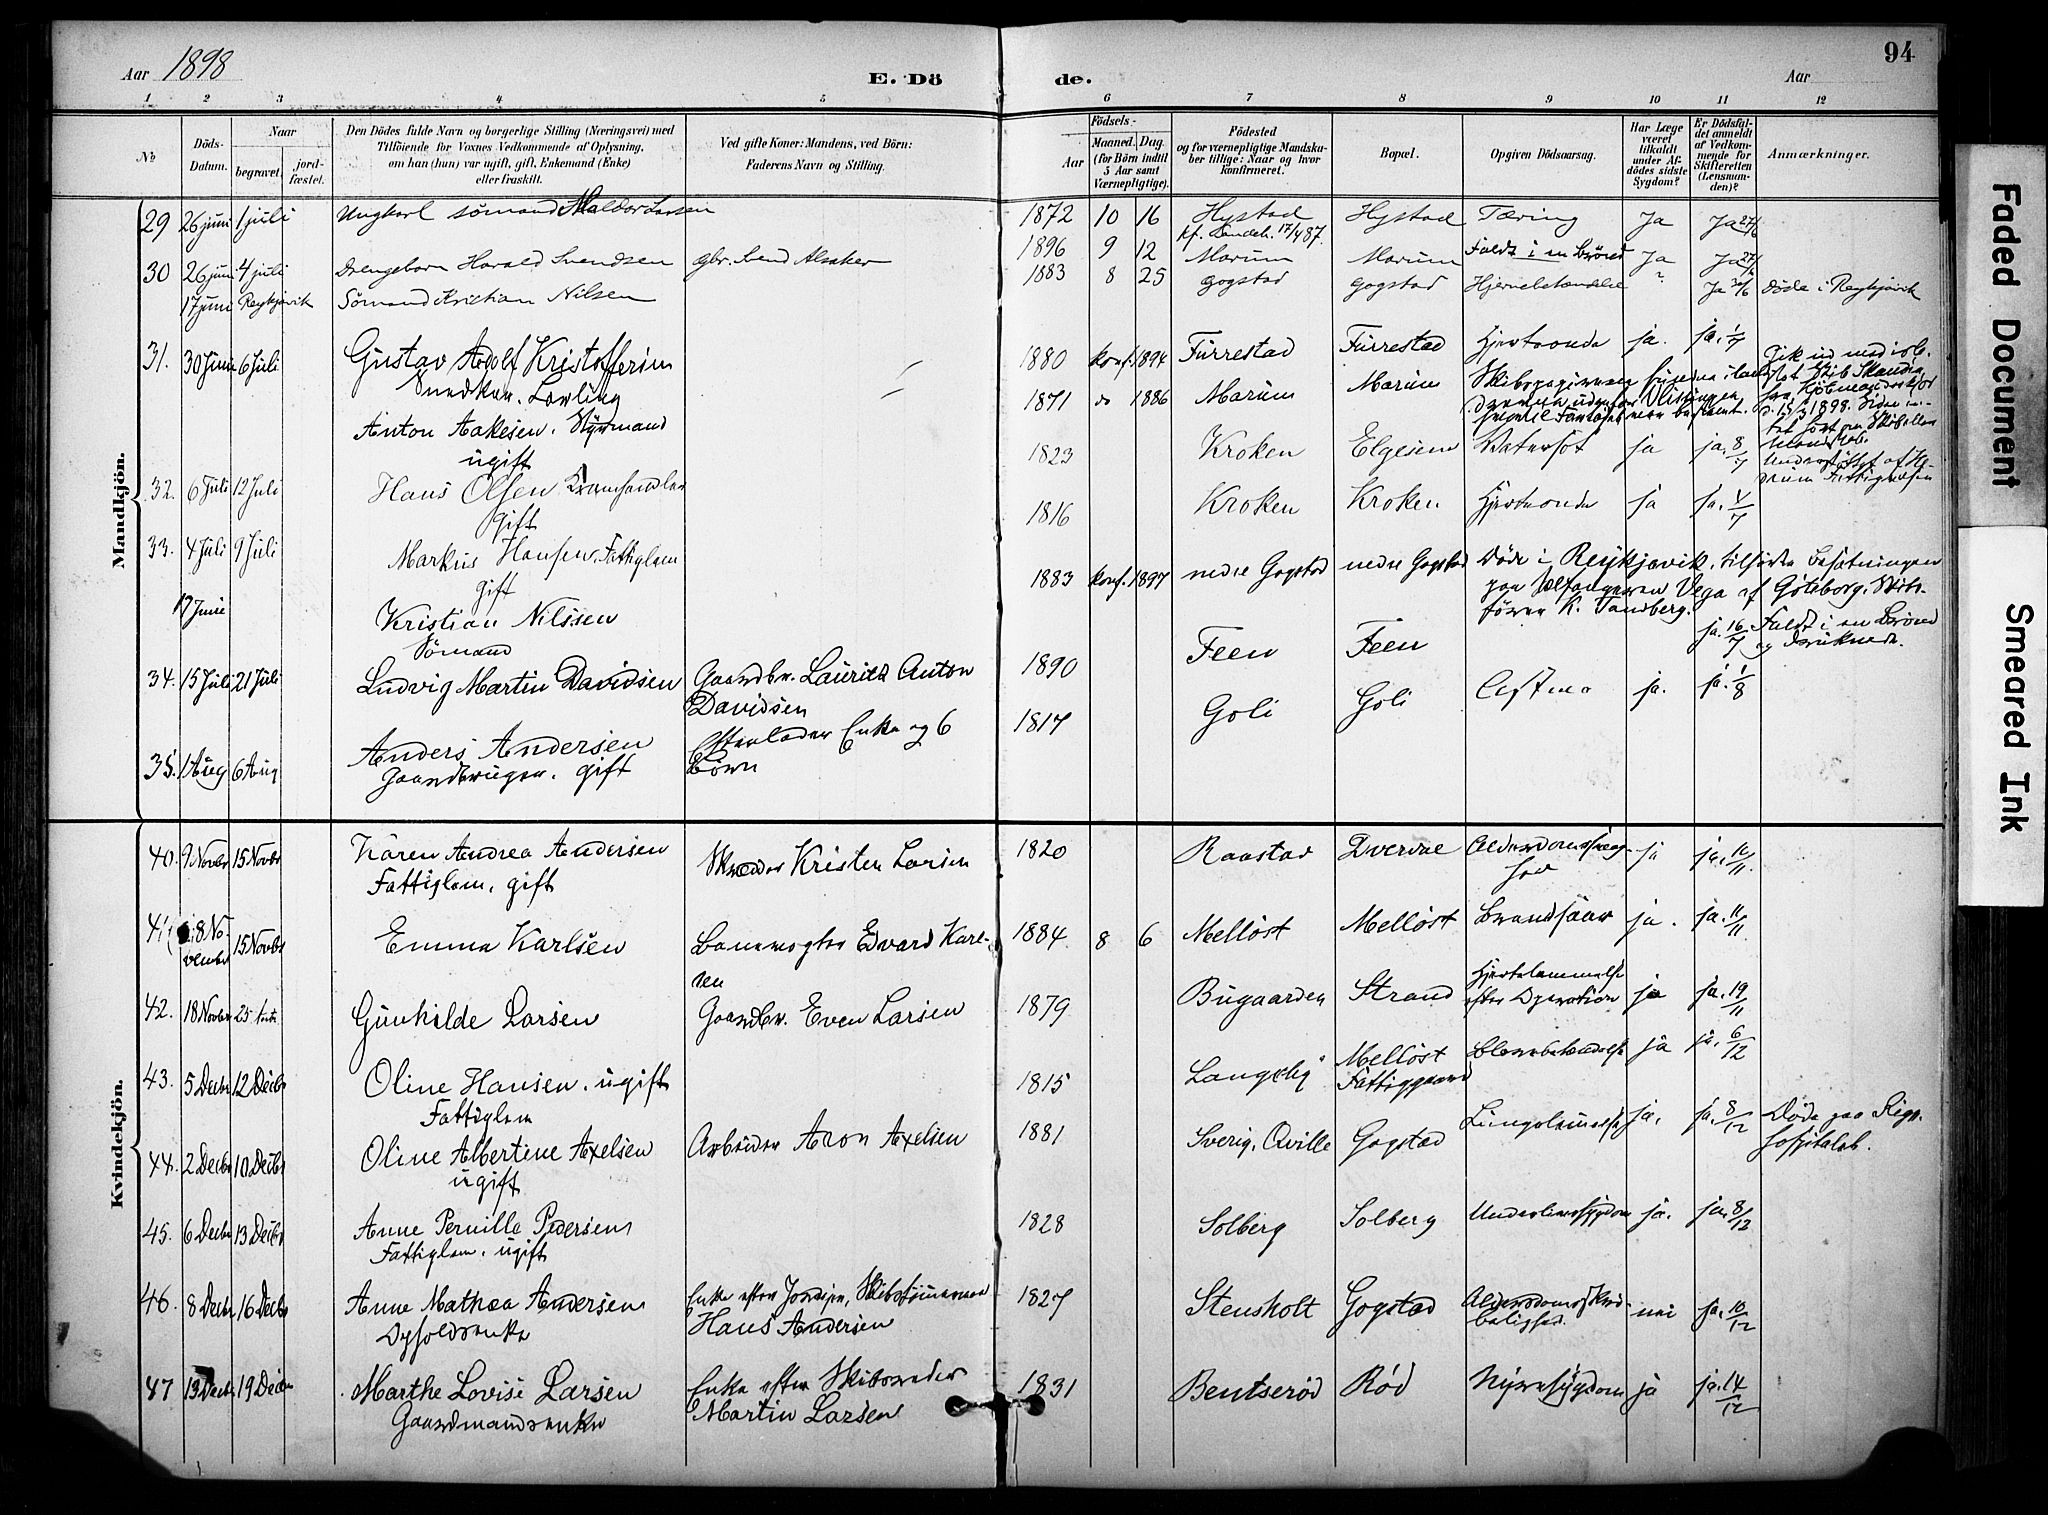 Aar 1898
E. Dö
de.
Aar
94
1 2 3 4 5 6 7 8 9 10 11 12
No
Döds-
Datum.
Naar
begravet.
jord-
fæstet.
Den Dödes fulde Navn og borgerlige Stilling (Næringsvei) med
Tilföiende for Voxnes Vedkommende af Oplysning,
om han (hun) var ugift, gift, Enkemand (Enke)
eller fraskilt.
Ved gifte Koner: Mandens, ved Börn:
Faderens Navn og Stilling.
Födsels-
Aar
Maaned. Dag.
(for Börn indtil
5 Aar samt
Værnepligtige).
Födested
og for værnepligtige Mandska-
ber tillige: Naar og hvor
konfirmeret.
Bopæl.
Opgiven Dödsaarsag.
Har Læge
været
tilkaldt
under Af-
dödes sidste
Sygdom?
Er Dödsfal-
det anmeldt
af Vedkom-
mende for
Skifteretten
(Lensman-
den)?
Anmærkninger.
Mandkjön.
29 26 juni 1 juli Ungkarl sömand Larsen 1872 10 16 Hystad Hystad Tæring Ja Ja 27/6
kf. Sandeh. 17/4 87.
30 26 juni 4 juli Drengebarn Harald Svendsen gbr. Svend Alsaker 1896 9 12 Marum Marum Faldt i en Brønd Ja Ja 27/6
17 juni Reykjavik Sömand Kristian Nilsen 1883 8 25 gogstad gogstad Hjernebetændelse ? Ja Döde i Reykjavik
31. 30 Juni 6 Juli Gustav Adolf Kristoffersen 1880 konf. 1894 Furrestad Furrestad Hjerteonde ja. ja. 1/7
Snedker. Lærling
Anton Aakesen. Styrmand 1871 do 1886 Marum Marum
ugift
Gik ud med
Skib Skandia
fra
15/3 1898. Siden in-
tet hørt
Mandskab.
32. 6 Juli 12 Juli Hans Olsen Kramhandler 1823 Kroken Elgesem Vatersot ja ja. 8/7
gift
Understøttet af
Fattigvæsen
33. 4 Juli 9 Juli Markus Hansen, Fattiglem 1816 Kroken Kroken Hjerteonde ja ja.
gift
17 Juni Kristian Nilssen 1883 konf. 1897 nedre Gogstad nedre Gogstad Döde i Reykjavik, tilhørte Besætningen
Sömand
paa Hvalfangeren Vega af Göteborg. Skibs-
fører K. Sandberg.
34. 15 Juli 21 Juli Ludvig Martin Davidsen Gaardbr. Laurits Anton 1890 Feen Feen ja. 16/7 Faldt i en Brønd
Davidsen
og druknede.
35. 1 Aug 6 Aug Anders Andersen Efterlader Enke og 6 1817 Goli Goli Astma ja. ja. 1/8
Gaardbruger. gift Börn
Kvindekjön.
40. 9 Novbr 15 Novbr Karen Andrea Andersen Skræder Kristen Larsen 1820 Raastad Dverdal Alderdomssvag- ja ja. 10/11.
Fattiglem. gift hed
41. 8 No- 15 Novbr Emma Karlsen Banevogter Edvard Karl- 1884 8 6 Mellöst Mellöst Brandsaar ja. ja. 11/11.
vember sen
42. 18 Novbr 25 Gunhilde Larsen Gaardbr. Even Larsen 1879 Bugaarden Strand Hjertelammelse ja ja. 19/11
efter Operation
43. 5 Decbr 12 Decbr Oline Hansen. ugift 1815 Langeby Mellöst Blærebetændelse ja ja. 6/12
Fattiglem Fattiggaard
44. 2 Decbr 10 Decbr Oline Albertine Axelsen Arbeider Aron Axelsen 1881 Sverig, Qville Gogstad ja. ja. 8/12 Döde paa Rigs-
ugift hospitalet.
45. 6 Decbr 13 Decbr Anne Pernille Pedersen 1828 Solberg Solberg Underlivssygdom ja. ja. 8/12
Fattiglem. ugift
46. 8 Decbr 16 Decbr Anne Mathea Andersen Enke efter Skibstømmermand 1827 Stensholt Gogstad Alderdomsskrö- nei ja. 10/12
Opholdsenke Hans Andersen belighed.
47 13 Decbr 19 Decbr Marthe Lovise Larsen Enke efter Skibsreder 1831 Bentserød Rød Nyresygdom ja ja. 14/12
Gaardmandsenke Martin Larsen
Faded Document
Smeared Ink